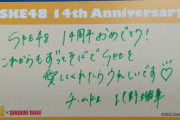 SKE48 14th Anniversary
SKE48 14周年
おめでとう!
これからもずっとそばでSKEを
愛してくれたらうれしいです♡
チームKII
SUNSHINE SAKAE